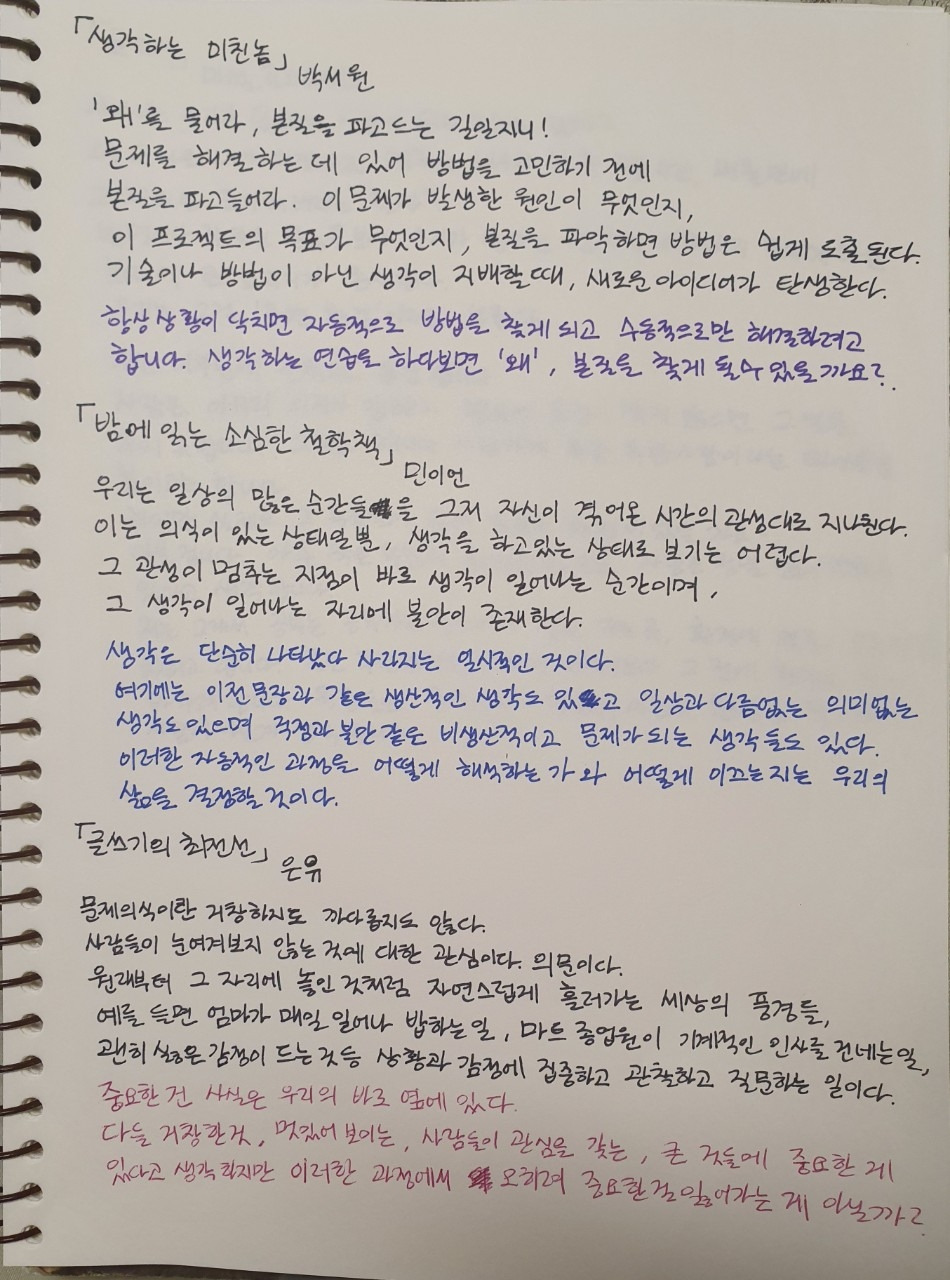 「생각하는 미친놈」 박서원
'왜'를 물어라, 본질을 파고드는 길일지니!
문제를 해결하는 데 있어 방법을 고민하기 전에
본질을 파고들어라. 이 문제가 발생한 원인이 무엇인지,
이 프로젝트의 목표가 무엇인지, 본질을 파악하면 방법은 쉽게 도출된다.
기술이나 방법이 아닌 생각이 지배할 때, 새로운 아이디어가 탄생한다.
항상 상황이 닥치면 자동적으로 방법을 찾게 되고 수동적으로만 해결하려고
합니다. 생각하는 연습을 하다보면 '왜', 본질을 찾게 될 수 있을까요?
「밤에 읽는 소심한 철학책」 민이언
우리는 일상의 많은 순간들을 그저 자신이 겪어온 시간의 관성대로 지나친다.
이는 의식이 있는 상태일뿐, 생각을 하고있는 상태로 보기는 어렵다.
그 관성이 멈추는 지점이 바로 생각이 일어나는 순간이며,
그 생각이 일어나는 자리에 불안이 존재한다.
생각은 단순히 나타났다 사라지는 일시적인 것이다.
여기에는 이전 문장과 같은 생산적인 생각도 있고 일상과 다름없는 의미없는
생각도 있으며 걱정과 불안 같은 비생산적이고 문제가 되는 생각들도 있다.
이러한 자동적인 과정을 어떻게 해석하는가와 어떻게 이끄는지는 우리의
삶을 결정할 것이다.
「글쓰기의 최전선」 은유
문제의식이란 거창하지도 까다롭지도 않다.
사람들이 눈여겨보지 않는 것에 대한 관심이다. 의문이다.
원래부터 그 자리에 놓인 것처럼 자연스럽게 흘러가는 세상의 풍경들,
예를 들면 엄마가 매일 일어나 밥하는 일, 마트 종업원이 기계적인 인사를 건네는 일,
괜히 싫은 감정이 드는 것 등 상황과 감정에 집중하고 관찰하고 질문하는 일이다.
중요한 건 사실은 우리의 바로 옆에 있다.
다들 거창한것, 멋있어 보이는, 사람들이 관심을 갖는, 큰 것들에 중요한 게
있다고 생각하지만 이러한 과정에서 오히려 중요한걸 잃어가는 게 아닐까?